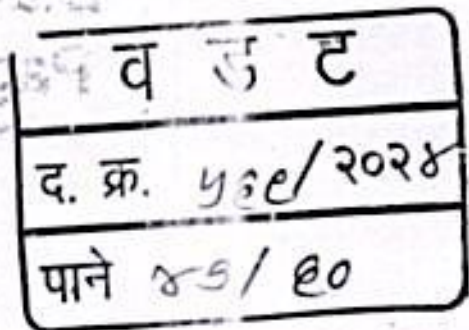 व ड ट
द. क्र. ५३९/२०२४
पाने ४५/६०